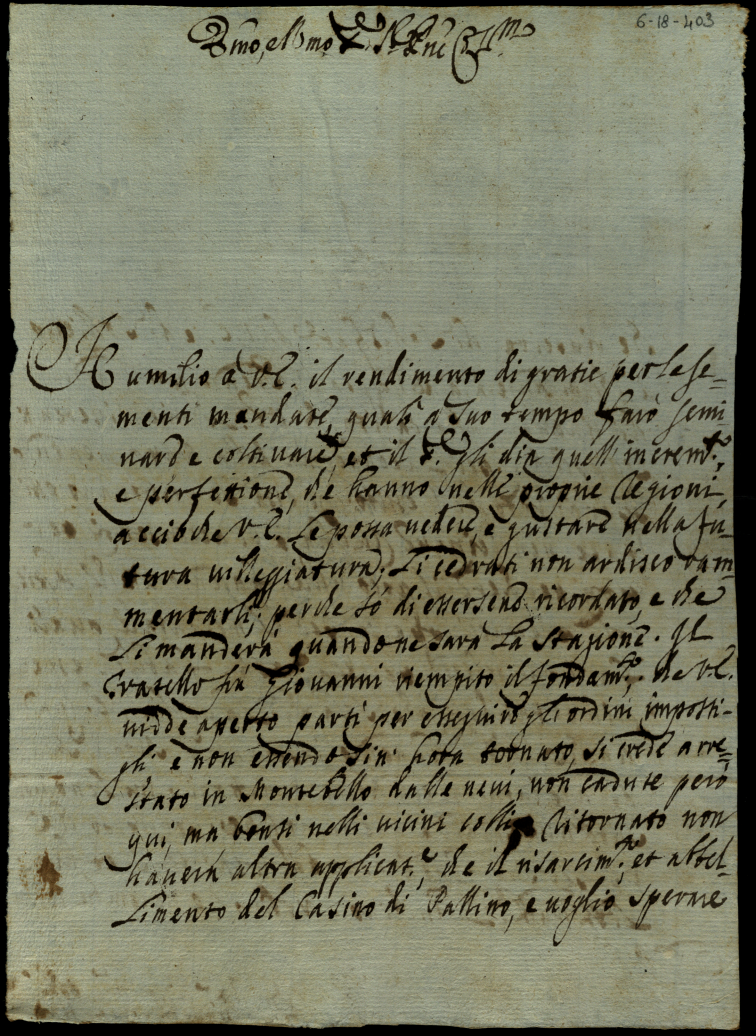 6-18-403
Humilio à V.E. il rendimento di gratie per le se=
menti mandate, quali a suo tempo farò semi=
nare e coltivare, et il gli dia quell'increm.to,
e perfettione, che hanno nelle proprie Regioni,
acciòche V.E. le possa vedere, e gustare nella fu=
tura villeggiatura; Li cedrati non ardisco ram=
mentarli; perche sò di essersene ricordato, e che
li manderà quando ne sarà la stagione. Il
fratello frà Giovanni riempito il fondam.to, che V.E.
vidde aperto partì per esseguire gli ordini imposti=
gli e non essendo sin' hora tornato, si crede arre=
stato in Montebello dalle nevi, non cadute però
qui, ma bensì nelli vicini colli. Ritornato non
haverà altra applicat.e, che il risarcim.to, et abbel=
limento del Casino di Pallino, e voglio sperare